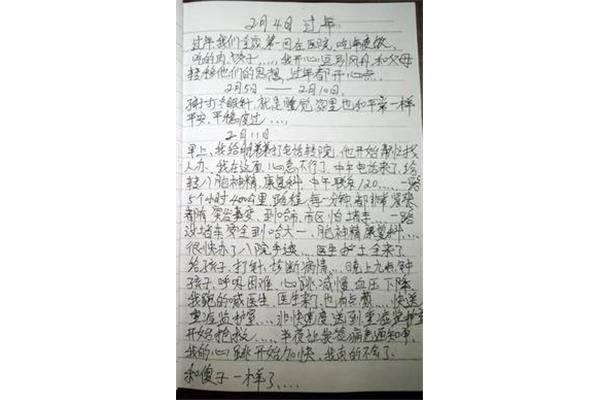 2月4日 过年
过年我们全家第一回在医院,吃年夜饭,
吃的肉饺子,....,我开心逗引风丹,和父母
转移他们的思想,过年都开心点.
2月5日——2月10日.
孩打打针,就是睡觉,家里也和平常一样
平安,平稳度过....
2月11日
早上,我给明弟弟打电话转院,他开始帮忙找
人办,我在这面心急不行了,中午电话来了,给
转个脑神精,康复科.中午联系120....一路
5个小时400公里路程,每一分钟都非常紧张
都有突发事变,到哈市,市区怕堵车....一路
没堵车安全到哈大一、脑神精康复科....
很快办了入院手续....医生护士全来了
给孩子,打针,诊断病情....晚上九点钟
孩子,呼吸困难,心跳减慢,血压下降.
我跑的喊医生,医生来了,也有点蒙....快送
重症监护室....非快速度送到重症监护室
开始抢救....半夜让我签病危通知单,
我的心跳开始加快,我真的不会了.
和傻子一样了....